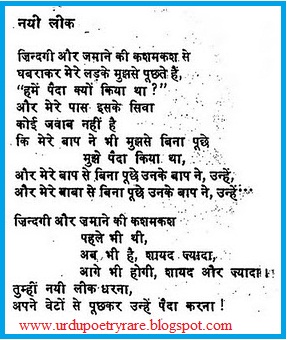 नयी लीक
ज़िन्दगी और ज़माने की कशमकश से
घबराकर मेरे लड़के मुझसे पूछते हैं,
"हमें पैदा क्यों किया था ?"
और मेरे पास इसके सिवा
कोई जवाब नहीं है
कि मेरे बाप ने भी मुझसे बिना पूछे
मुझे पैदा किया था,
और मेरे बाप से बिना पूछे उनके बाप ने, उन्हें,
और मेरे बाबा से बिना पूछे उनके बाप ने, उन्हें···
ज़िन्दगी और ज़माने की कशमकश
पहले भी थी,
अब भी है, शायद ज़्यादा,
आगे भी होगी, शायद और ज़्यादा।
तुम्हीं नयी लीक धरना,
अपने बेटों से पूछकर उन्हें पैदा करना !
www.urdupoetryrare.blogspot.com